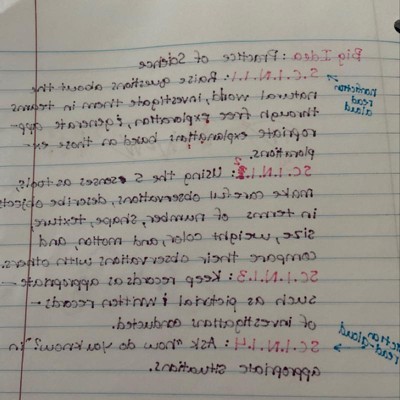 Big Idea: Practice of Science
SC.1.N.1.1: Raise questions about the
natural world, investigate them in teams
through free exploration, & generate app-
ropriate explanations based on those ex-
plorations.
SC.1.N.1.2: Using the 5 senses as tools,
make careful observations, describe objects
in terms of number, shape, texture,
size, weight, color, and motion, and
compare their observations with others.
SC.1.N.1.3: Keep records as appropriate-
such as pictorial & written records-
of investigations conducted.
SC.1.N.1.4: Ask "how do you know?" in
appropriate situations.
nonfiction
read
aloud
read-aloud